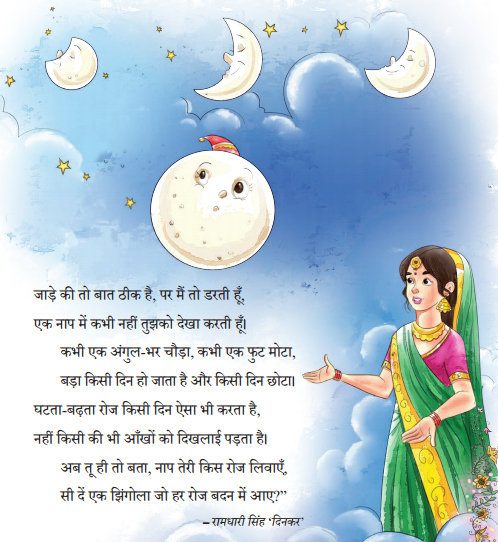 जाड़े की तो बात ठीक है, पर मैं तो डरती हूँ,
एक नाप में कभी नहीं तुझको देखा करती हूँ।
कभी एक अंगुल-भर चौड़ा, कभी एक फुट मोटा,
बड़ा किसी दिन हो जाता है और किसी दिन छोटा।
घटता-बढ़ता रोज किसी दिन ऐसा भी करता है,
नहीं किसी की भी आँखों को दिखलाई पड़ता है।
अब तू ही तो बता, नाप तेरी किस रोज लिवाएँ,
सी दें एक झिंगोला जो हर रोज बदन में आए?”
– रामधारी सिंह ‘दिनकर’